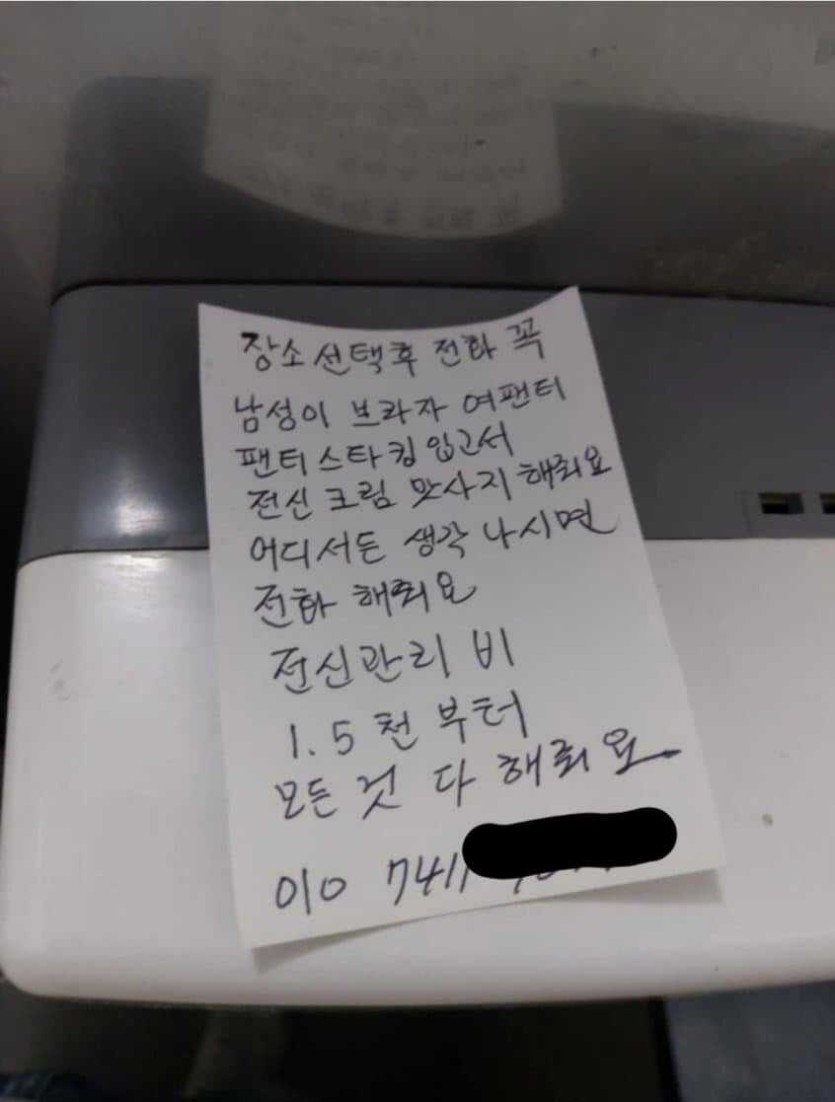 장소선택후 전화 꼭
남성이 브라자 여팬티
팬티스타킹입고서
전신 크림 맛사지 해줘요
어디서든 생각 나시면
전화 해줘요
전신관리 비
1.5천 부터
모든것 다 해줘요
010 7411